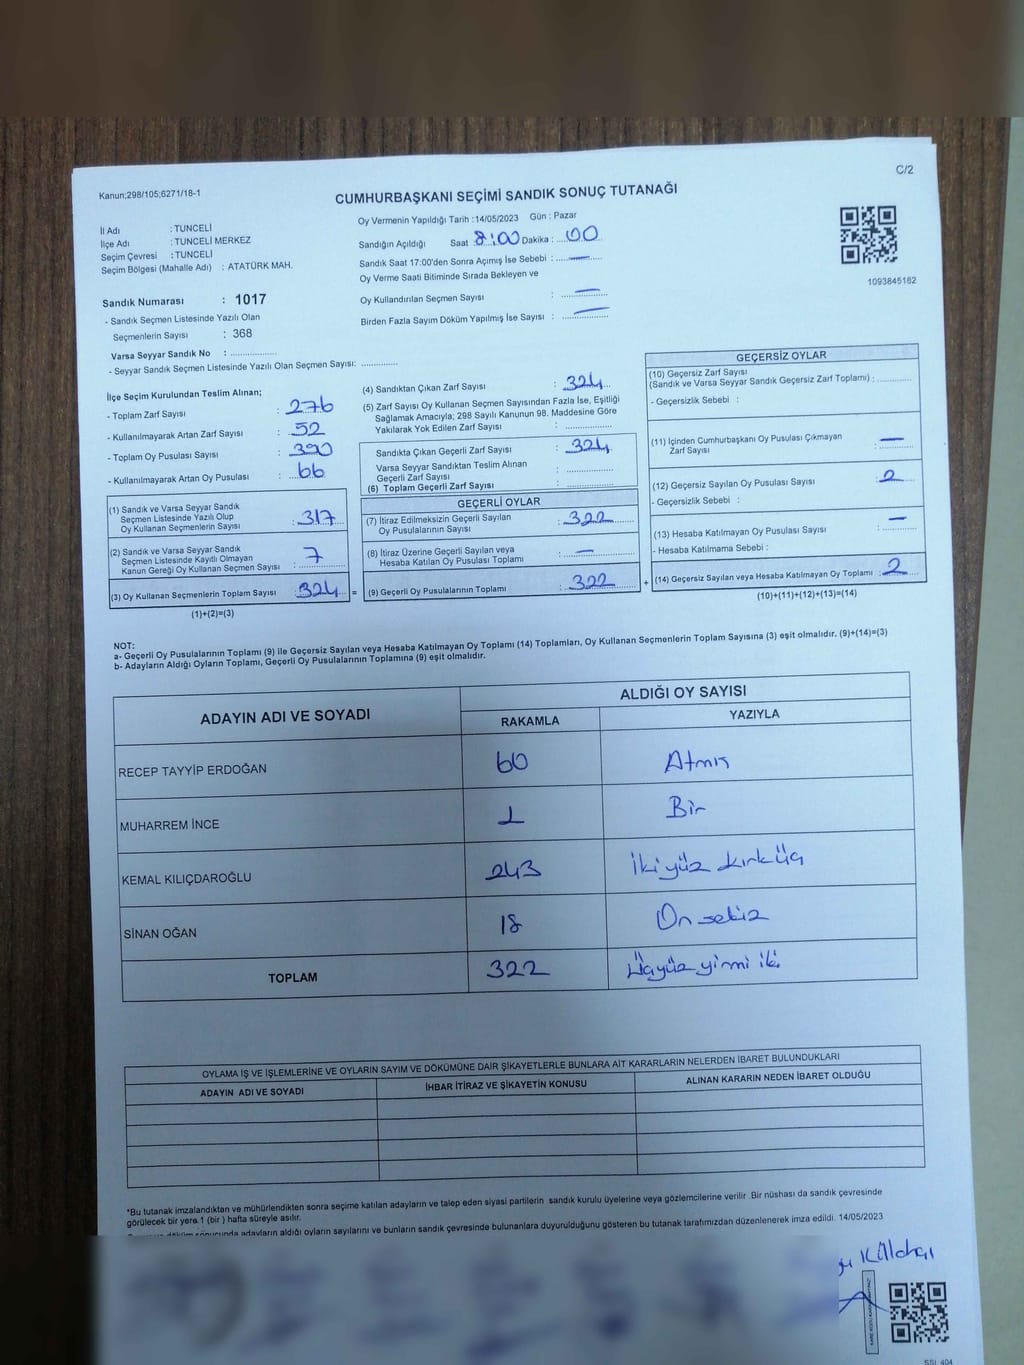 C/2
Kanun;298/105;6271/18-1
CUMHURBAŞKANI SEÇİMİ SANDIK SONUÇ TUTANAĞI
İl Adı : TUNCELİ
İlçe Adı : TUNCELİ MERKEZ
Seçim Çevresi : TUNCELİ
Seçim Bölgesi (Mahalle Adı) : ATATÜRK MAH.
Oy Vermenin Yapıldığı Tarih :14/05/2023 Gün : Pazar
Sandığın Açıldığı Saat 8:00 Dakika : 00
Sandık Saat 17:00'den Sonra Açımış İse Sebebi : —
Oy Verme Saati Bitiminde Sırada Bekleyen ve
Oy Kullandırılan Seçmen Sayısı : —
Birden Fazla Sayım Döküm Yapılmış İse Sayısı : —
1093845162
Sandık Numarası : 1017
- Sandık Seçmen Listesinde Yazılı Olan
Seçmenlerin Sayısı : 368
Varsa Seyyar Sandık No : ................
- Seyyar Sandık Seçmen Listesinde Yazılı Olan Seçmen Sayısı: ............
İlçe Seçim Kurulundan Teslim Alınan;
- Toplam Zarf Sayısı : 276
- Kullanılmayarak Artan Zarf Sayısı : 52
- Toplam Oy Pusulası Sayısı : 390
- Kullanılmayarak Artan Oy Pusulası : 66
(1) Sandık ve Varsa Seyyar Sandık
Seçmen Listesinde Yazılı Olup
Oy Kullanan Seçmenlerin Sayısı : 317
(2) Sandık ve Varsa Seyyar Sandık
Seçmen Listesinde Kayıtlı Olmayan
Kanun Gereği Oy Kullanan Seçmen Sayısı : 7
(3) Oy Kullanan Seçmenlerin Toplam Sayısı : 324 =
(1)+(2)=(3)
(4) Sandıktan Çıkan Zarf Sayısı : 324
(5) Zarf Sayısı Oy Kullanan Seçmen Sayısından Fazla İse, Eşitliği
Sağlamak Amacıyla; 298 Sayılı Kanunun 98. Maddesine Göre
Yakılarak Yok Edilen Zarf Sayısı : ............
Sandıkta Çıkan Geçerli Zarf Sayısı : 324
Varsa Seyyar Sandıktan Teslim Alınan
Geçerli Zarf Sayısı : ............
(6) Toplam Geçerli Zarf Sayısı : ............
GEÇERLİ OYLAR
(7) İtiraz Edilmeksizin Geçerli Sayılan
Oy Pusulalarının Sayısı : 322
(8) İtiraz Üzerine Geçerli Sayılan veya
Hesaba Katılan Oy Pusulası Toplamı : —
(9) Geçerli Oy Pusulalarının Toplamı : 322 +
GEÇERSİZ OYLAR
(10) Geçersiz Zarf Sayısı
(Sandık ve Varsa Seyyar Sandık Geçersiz Zarf Toplamı) : ............
- Geçersizlik Sebebi :
(11) İçinden Cumhurbaşkanı Oy Pusulası Çıkmayan
Zarf Sayısı : —
(12) Geçersiz Sayılan Oy Pusulası Sayısı : 2
- Geçersizlik Sebebi :
(13) Hesaba Katılmayan Oy Pusulası Sayısı : —
- Hesaba Katılmama Sebebi :
(14) Geçersiz Sayılan veya Hesaba Katılmayan Oy Toplamı : 2
(10)+(11)+(12)+(13)=(14)
NOT:
a- Geçerli Oy Pusulalarının Toplamı (9) ile Geçersiz Sayılan veya Hesaba Katılmayan Oy Toplamı (14) Toplamları, Oy Kullanan Seçmenlerin Toplam Sayısına (3) eşit olmalıdır. (9)+(14)=(3)
b- Adayların Aldığı Oyların Toplamı, Geçerli Oy Pusulalarının Toplamına (9) eşit olmalıdır.
ADAYIN ADI VE SOYADI ALDIĞI OY SAYISI
RAKAMLA YAZIYLA
RECEP TAYYİP ERDOĞAN 60 Atmış
MUHARREM İNCE 1 Bir
KEMAL KILIÇDAROĞLU 243 İkiyüz kırküç
SİNAN OĞAN 18 On sekiz
TOPLAM 322 Üçyüz yirmi iki
OYLAMA İŞ VE İŞLEMLERİNE VE OYLARIN SAYIM VE DÖKÜMÜNE DAİR ŞİKAYETLERLE BUNLARA AİT KARARLARIN NELERDEN İBARET BULUNDUKLARI
ADAYIN ADI VE SOYADI İHBAR İTİRAZ VE ŞİKAYETİN KONUSU ALINAN KARARIN NEDEN İBARET OLDUĞU
*Bu tutanak imzalandıktan ve mühürlendikten sonra seçime katılan adayların ve talep eden siyasi partilerin sandık kurulu üyelerine veya gözlemcilerine verilir .Bir nüshası da sandık çevresinde
görülecek bir yere 1 (bir ) hafta süreyle asılır.
sonucunda adayların aldığı oyların sayılarını ve bunların sandık çevresinde bulunanlara duyurulduğunu gösteren bu tutanak tarafımızdan düzenlenerek imza edildi. 14/05/2023
SSİ 404